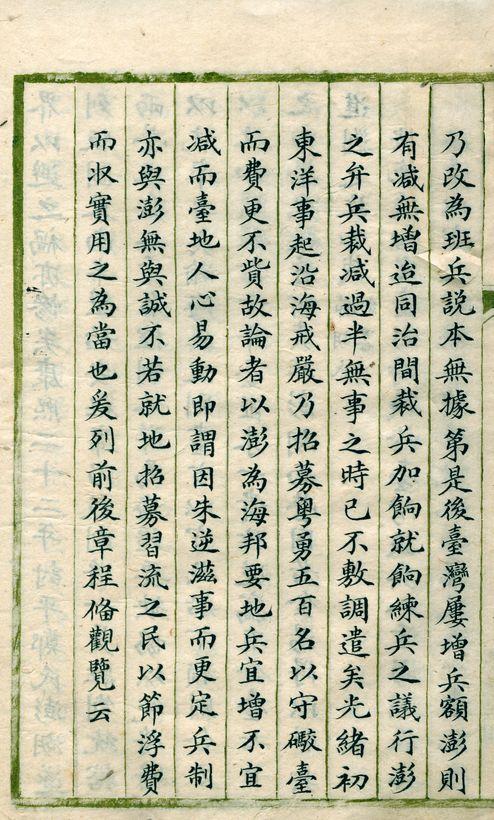 乃改為班兵說本無據第是後臺灣屢增兵額澎則
有減無增迨同治間裁兵加餉就餉練兵之議行澎
之弁兵裁減過半無事之時已不敷調遣矣光緒初
東洋事起沿海戒嚴乃招募粵勇五百名以守礮臺
而費更不貲故論者以澎為海邦要地兵宜增不宜
減而臺地人心易動即謂因朱逆滋事而更定兵制
亦與澎無與誠不若就地招募習流之民以節浮費
而収實用之為當也爰列前後章程俻觀覽云